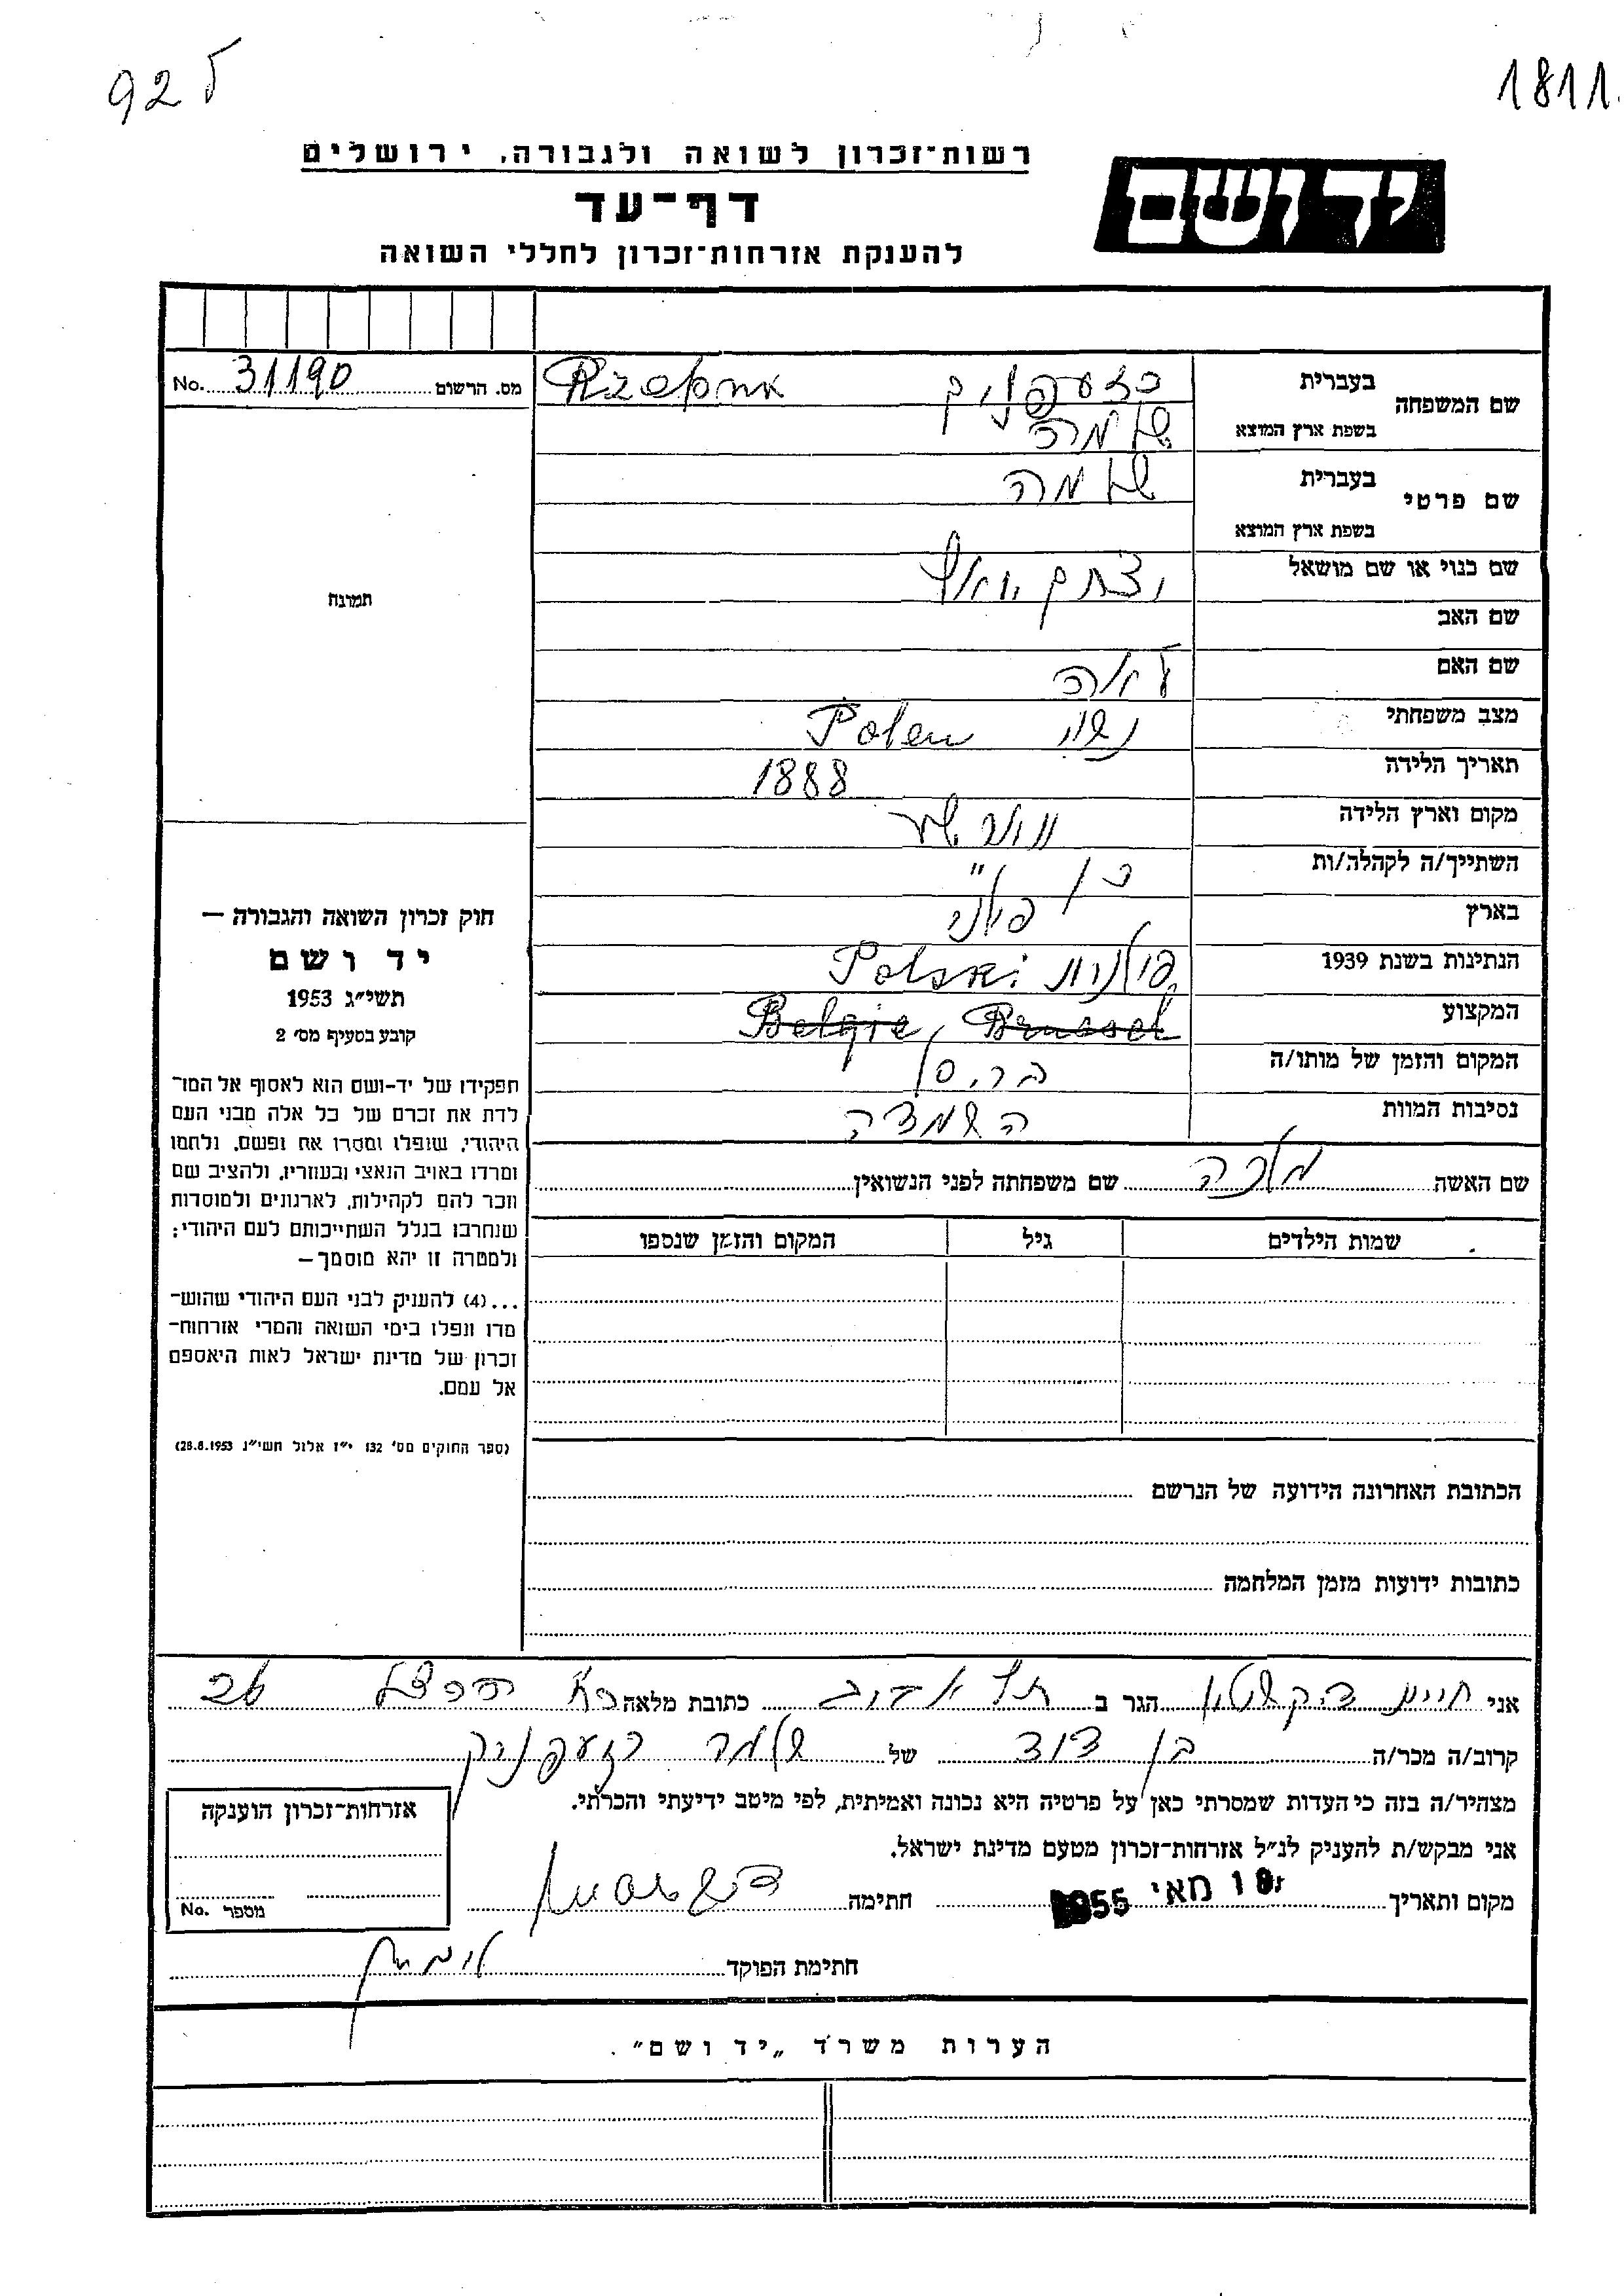 92 ל
1811.
רשות־זכרון לשואה ולגבורה, ירושלים
יד ושם
דף־עד
להענקת אזרחות־זכרון לחללי השואה
שם המשפחה בעברית רזעפניק Rzepnik
בשפת ארץ המוצא שלמה
מס. הרשום 31190 No.
שם פרטי בעברית שלמה
בשפת ארץ המוצא
שם כנוי או שם מושאל יצחק
תמונה
שם האב
שם האם
מצב משפחתי נשוי Polen
תאריך הלידה 1888
מקום וארץ הלידה
השתייך/ה לקהלה/ות
בארץ
הנתינות בשנת 1939 פולנית Polski
המקצוע Belgie, Brussel
המקום והזמן של מותו/ה בריסל
נסיבות המוות השמדה
חוק זכרון השואה והגבורה —
יד ושם
תשי״ג 1953
קובע בסעיף מס׳ 2
תפקידו של יד-ושם הוא לאסוף אל המו־
לדת את זכרם של כל אלה מבני העם
היהודי, שנפלו ומסרו את נפשם, נלחמו
ומרדו באויב הנאצי ובעוזריו, ולהציב שם
וזכר להם לקהילות, לארגונים ולמוסדות
שנחרבו בגלל השתייכותם לעם היהודי;
ולמטרה זו יהא מוסמך—
...(4) להעניק לבני העם היהודי שהוש־
מדו ונפלו בימי השואה והמרי אזרחות־
זכרון של מדינת ישראל לאות היאספם
אל עמם.
(ספר החוקים מס׳ 132 י״ז אלול תשי״ג 28.8.1953)
שם האשה מלכה שם משפחתה לפני הנשואין
שמות הילדים גיל המקום והזמן שנספו
הכתובת האחרונה הידועה של הנרשם
כתובות ידועות מזמן המלחמה
אני חיים הגר ב תל אביב כתובת מלאה הרצל
קרוב/ה מכר/ה בן דוד של שלמה רזעפניק
מצהיר/ה בזה כי העדות שמסרתי כאן על פרטיה היא נכונה ואמיתית, לפי מיטב ידיעתי והכרתי.
אני מבקש/ת להעניק לנ״ל אזרחות־זכרון מטעם מדינת ישראל.
מקום ותאריך מאי 1955 חתימה
חתימת הפוקד
אזרחות־זכרון הוענקה
מספר No.
הערות משרד „יד ושם״.